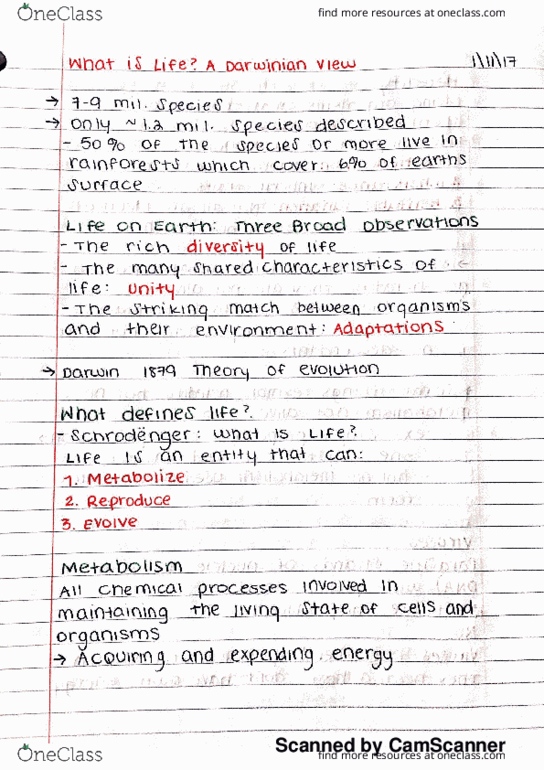 OneClass
find more resources at oneclass.com
What is Life? A Darwinian View
1/11/17
→ 7-9 mil. species
→ only ~1.2 mil. species described
- 50% of the species or more live in
rainforests which cover 6% of earths
surface
Life on Earth: Three Broad Observations
- The rich diversity of life
- The many shared characteristics of
life: unity
- The striking match between organisms
and their environment: Adaptations
→ Darwin 1879 Theory of evolution
What defines life?
- Schrodënger: What is Life?
Life is an entity that can:
1. Metabolize
2. Reproduce
3. Evolve
Metabolism
All chemical processes involved in
maintaining the living state of cells and
organisms
→ Acquiring and expending energy
Scanned by CamScanner
OneClass
find more resources at oneclass.com